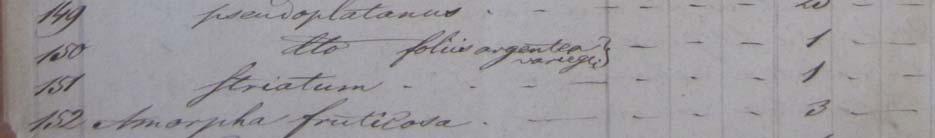 149 pseudoplatanus - - - - - - -
150 tto foliis argentea varieg: } - - - - 1 - -
151 striatum - - - - - - - 1 - -
152 Amorpha fruticosa - - - - - - 3 - -